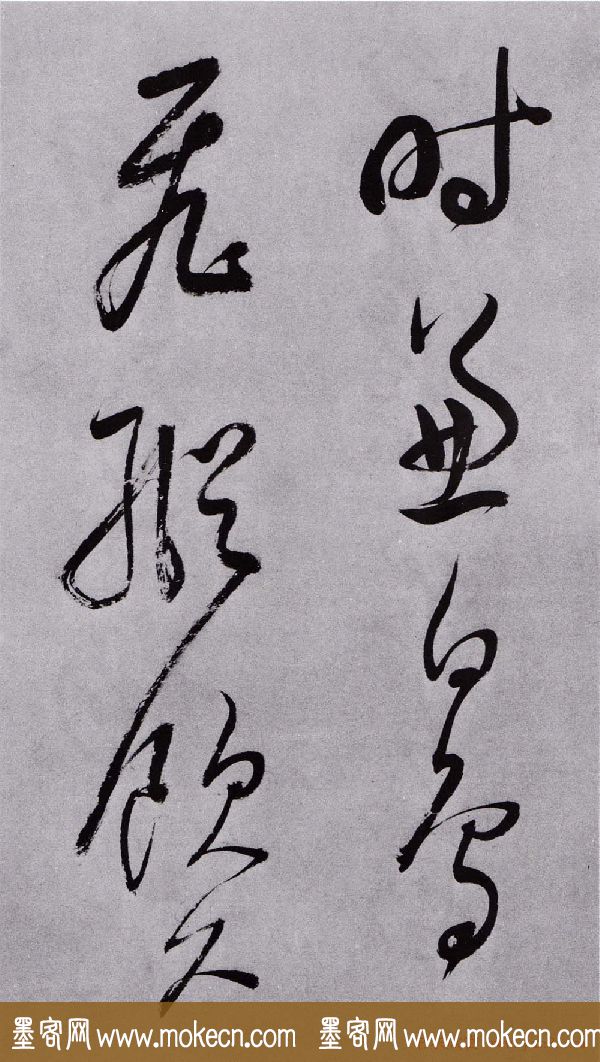 时兼白鸟
飞纵饮久
墨客网 www.mokecn.com 墨客网 www.mokecn.com